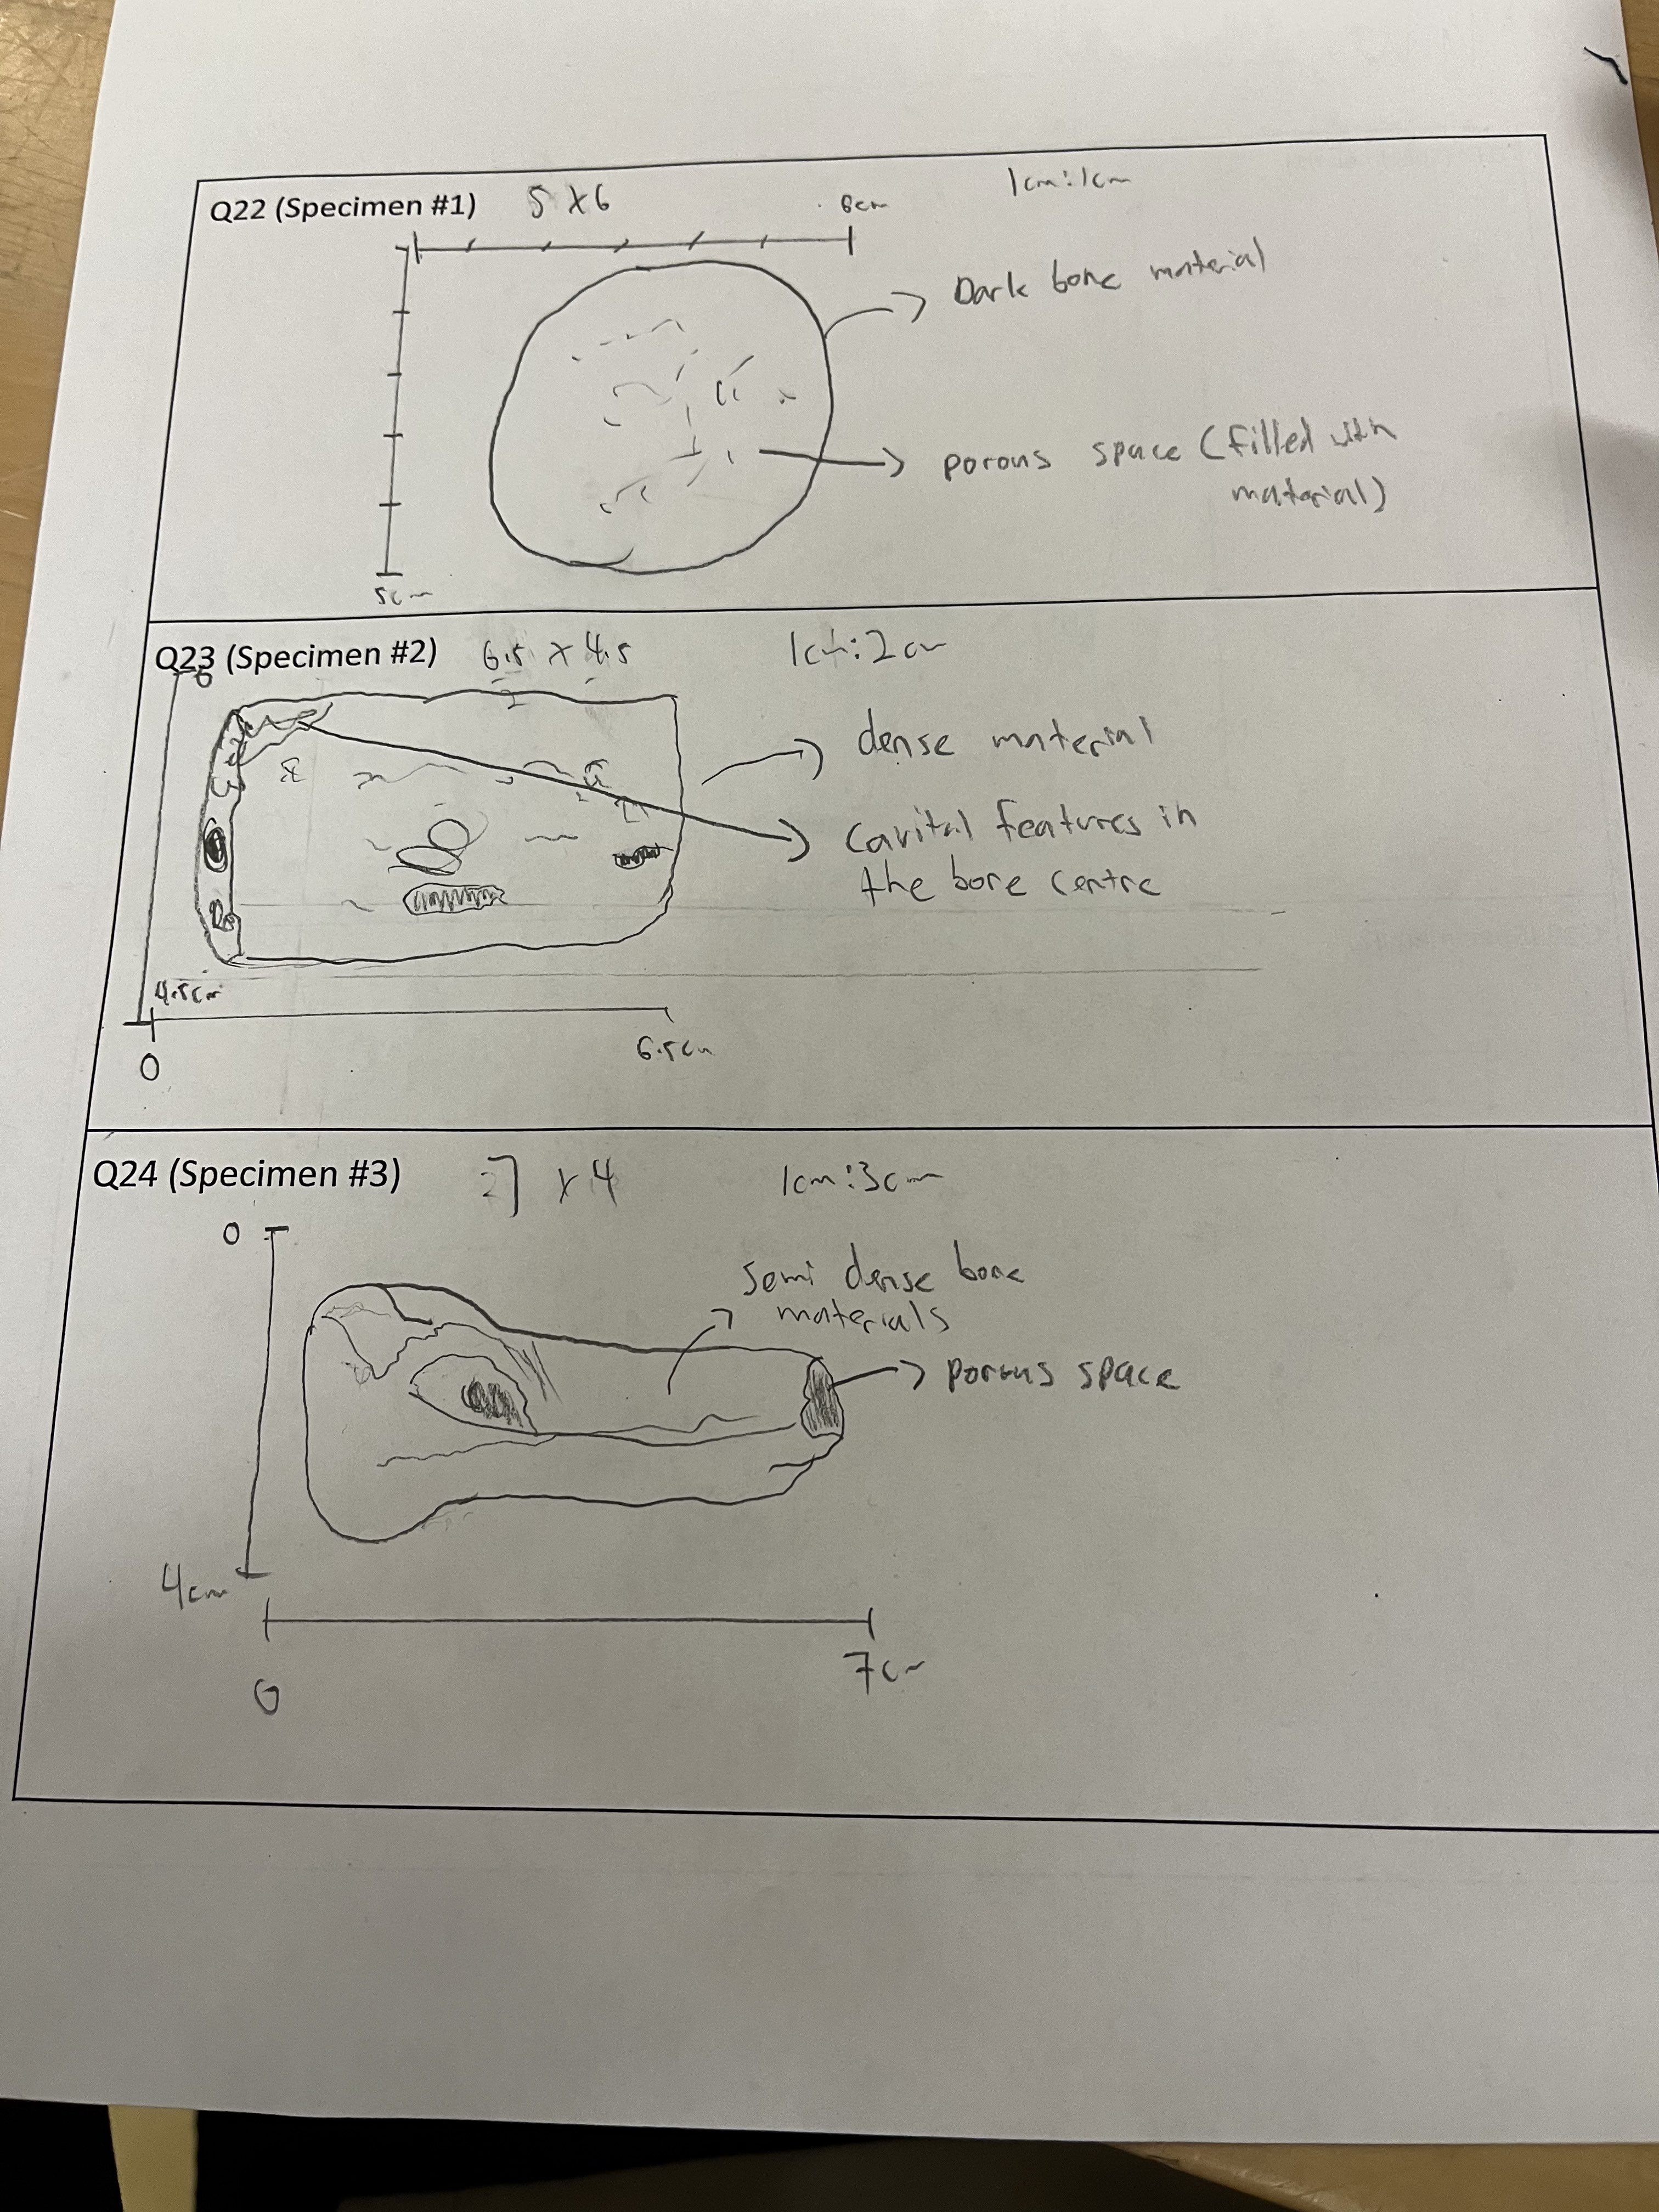 Q22 (Specimen #1) 5 x 6 1cm:1cm
6cm
Dark bone material
porous space (filled with
material)
5cm
Q23 (Specimen #2) 6.5 x 4.5 1cm:2cm
0
dense material
cavital features in
the bone centre
4.5cm
0 6.5cm
Q24 (Specimen #3) 7 x 4 1cm:3cm
0
semi dense bone
materials
porous space
4cm
0 7cm